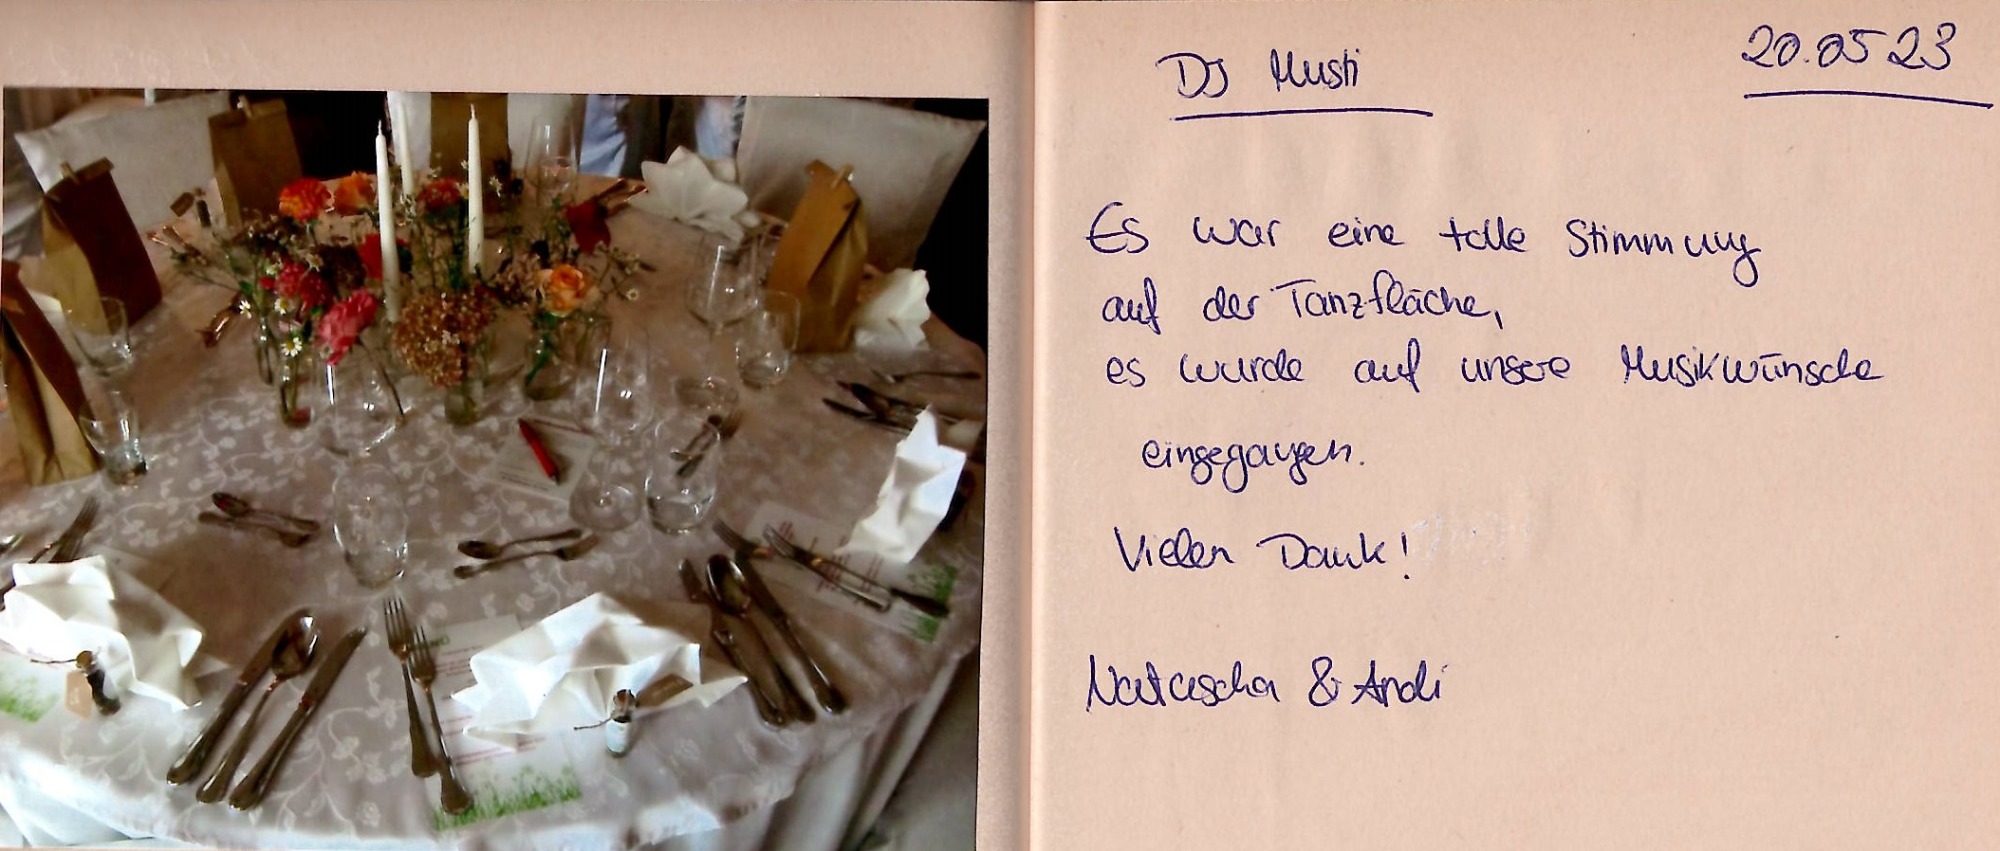 DJ Musti
20.05 23
Es war eine tolle Stimmung
auf der Tanzfläche,
es wurde auf unsere Musikwünsche
eingegangen.
Vielen Dank!
Natascha & Andi